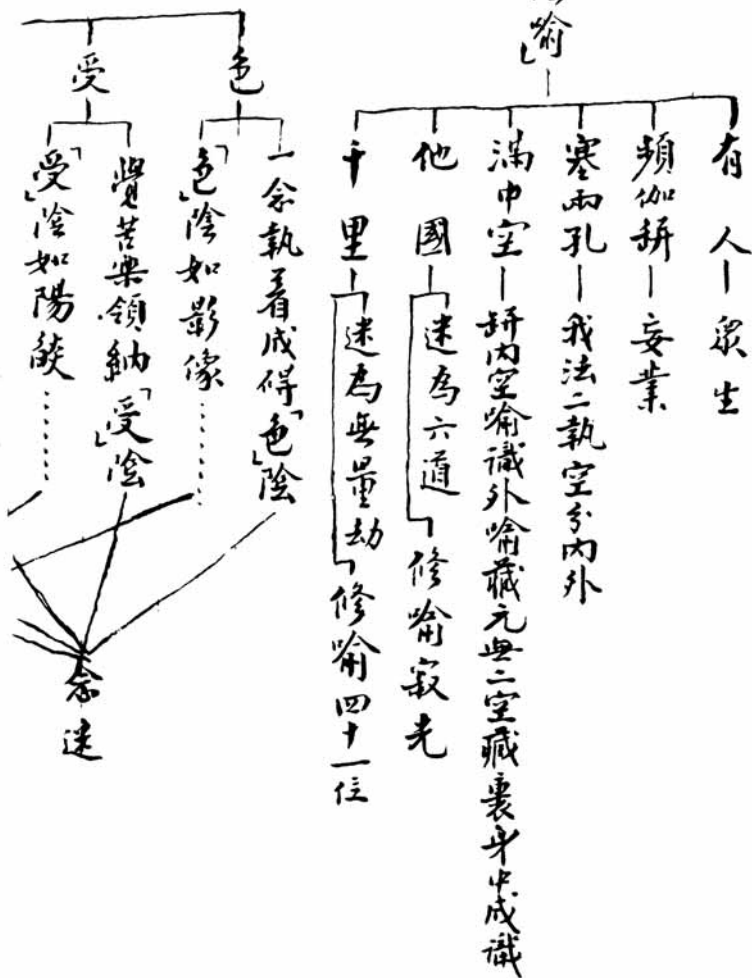 喻」
有人—眾生
頻伽缾—妄業
塞兩孔—我法二執空分內外
滿中空—缾內空喻識外喻藏元無二空藏裏身中成識
他國—迷為六道
修喻寂光
千里—迷為無量劫
修喻四十一位
色
一念執着成碍「色」陰
「色」陰如影像……
受
覺苦樂領納「受」陰
「受」陰如陽燄……
念迷